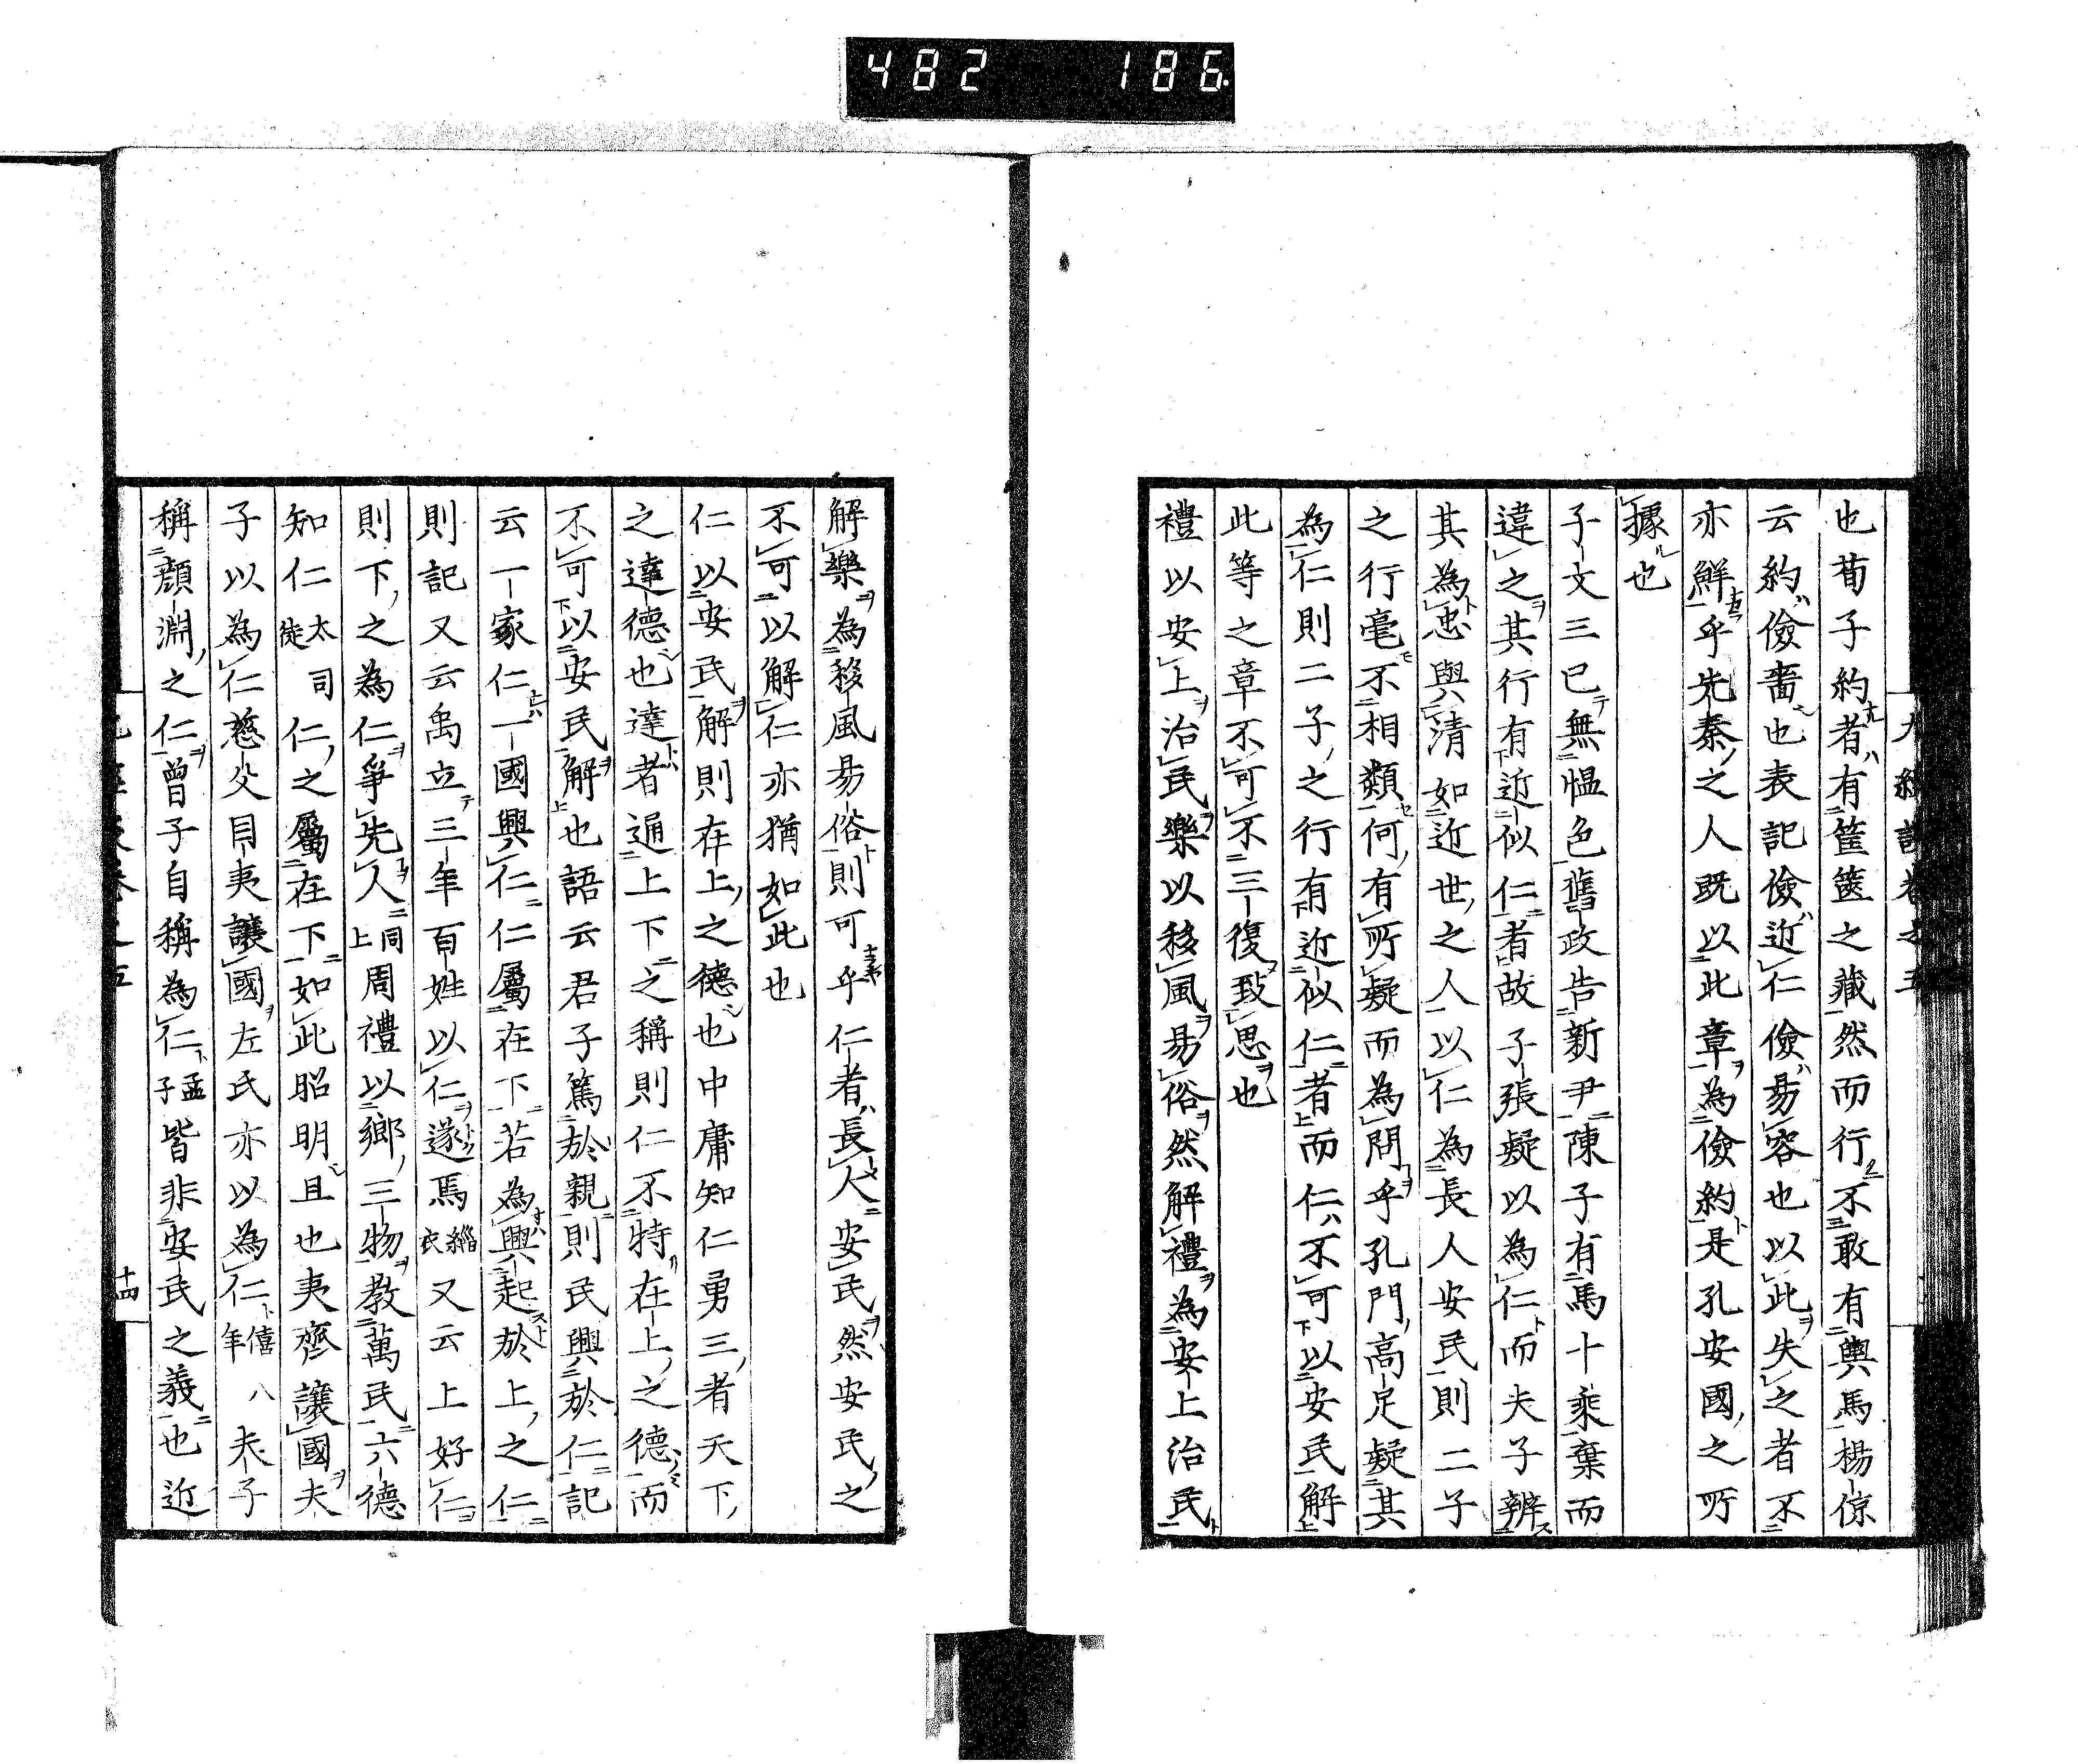 482 186
九經談卷之五
也荀子約者有筐篋之藏然而行不敢有輿馬楊倞
云約儉嗇也表記儉近仁儉易容也以此失之者不
亦鮮乎先秦之人既以此章為儉約是孔安國之所
據也
子文三已無慍色舊政告新尹陳子有馬十乘棄而
違之其行有近似仁者故子張疑以為仁而夫子辨
其為忠與清如近世之人以仁為長人安民則二子
之行毫不相類何有所疑而為問乎孔門高足疑其
為仁則二子之行有近似仁者而仁不可以安民解
此等之章不可不三復致思也
禮以安上治民樂以移風易俗然解禮為安上治民
解樂為移風易俗則可乎仁者長人安民然安民之
不可以解仁亦猶如此也
仁以安民解則在上之德也中庸知仁勇三者天下
之達德也達者通上下之稱則仁不特在上之德而
不可以安民解也語云君子篤於親則民興於仁記
云一家仁一國興仁仁屬在下若為興起於上之仁
則記又云禹立三年百姓以仁遂焉緇衣又云上好仁
則下之為仁爭先人同上周禮以鄉三物教萬民六德
知仁太司徒仁之屬在下如此昭明且也夷齊讓國夫
子以為仁慈父目夷讓國左氏亦以為仁僖八年夫子
稱顏淵之仁曾子自稱為仁孟子皆非安民之義也近
十四